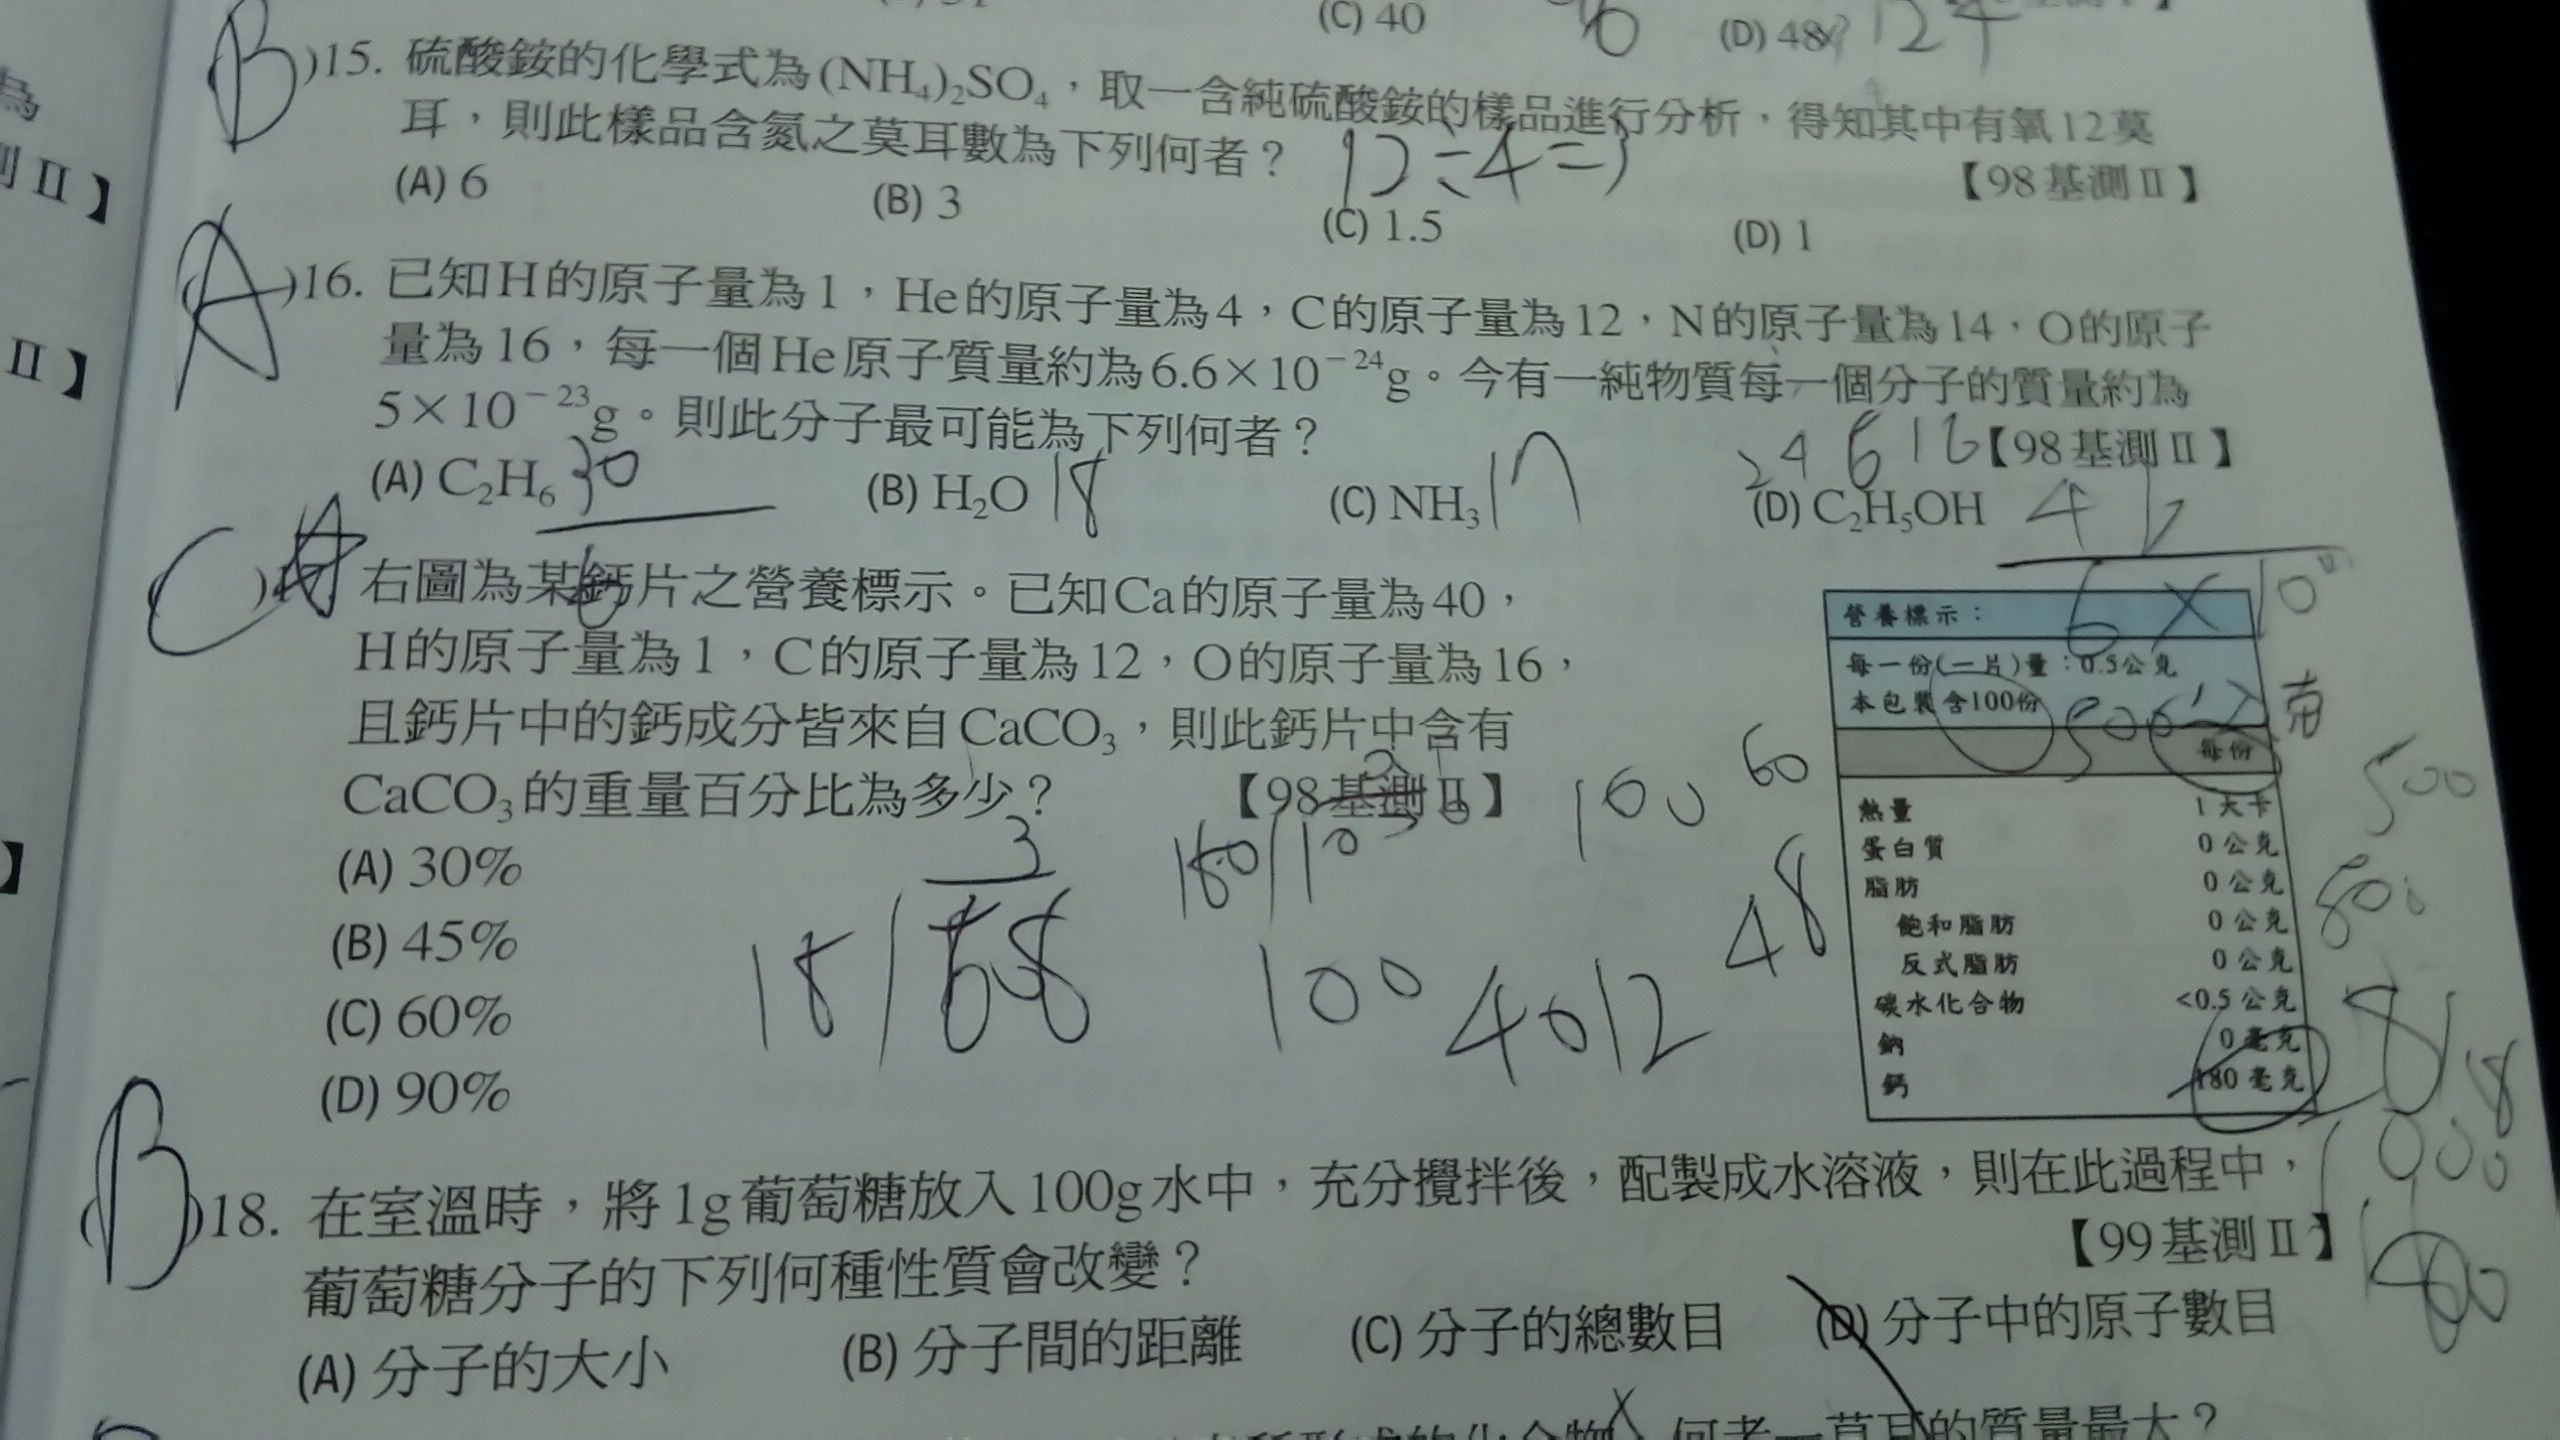 (C) 40
(D) 48
B )15. 硫酸銨的化學式為(NH₄)₂SO₄，取一含純硫酸銨的樣品進行分析，得知其中有氧12莫
耳，則此樣品含氮之莫耳數為下列何者？ 12÷4=3 【98基測Ⅱ】
(A) 6 (B) 3 (C) 1.5 (D) 1
A )16. 已知H的原子量為1，He的原子量為4，C的原子量為12，N的原子量為14，O的原子
量為16，每一個He原子質量約為6.6×10⁻²⁴g。今有一純物質每一個分子的質量約為
5×10⁻²³g。則此分子最可能為下列何者？ 24 6 16【98基測Ⅱ】
(A) C₂H₆ 30 (B) H₂O 18 (C) NH₃ 17 (D) C₂H₅OH
C ) 右圖為某鈣片之營養標示。已知Ca的原子量為40，
H的原子量為1，C的原子量為12，O的原子量為16，
且鈣片中的鈣成分皆來自CaCO₃，則此鈣片中含有
CaCO₃的重量百分比為多少？ 【98基測Ⅱ】
(A) 30%
(B) 45%
(C) 60%
(D) 90%
100 60
48
100 40 12
營養標示：
每一份(一片)量：0.5公克
本包裝含100份
每份
熱量 1大卡
蛋白質 0公克
脂肪 0公克
飽和脂肪 0公克
反式脂肪 0公克
碳水化合物 <0.5公克
鈉 0毫克
鈣 180毫克
500
B )18. 在室溫時，將1g葡萄糖放入100g水中，充分攪拌後，配製成水溶液，則在此過程中，
葡萄糖分子的下列何種性質會改變？ 【99基測Ⅱ】
(A) 分子的大小 (B) 分子間的距離 (C) 分子的總數目 (D) 分子中的原子數目
何者一莫耳的質量最大？